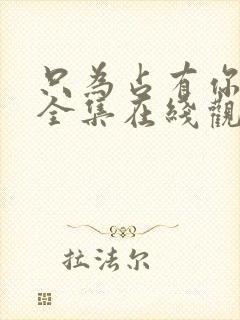 只为占有你
全集在线觀
拉法尔